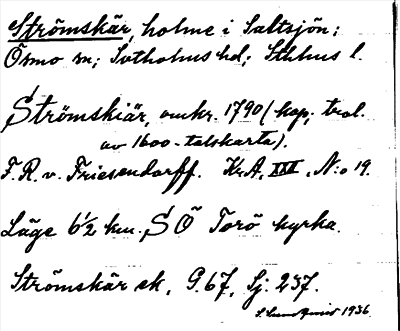 Strömskär, holme i Saltsjön;
Ösmo sn; Sotholms hd; Sthlms l.
Strömskiär, omkr. 1790 (kop. trol.
av 1600-talskarta).
F. R. v. Friesendorff. Kr.A. XXII. N:o 19.
Läge 6½ km. SÖ Torö kyrka.
Strömskär ek. G. 67, Sj. 237.
1936